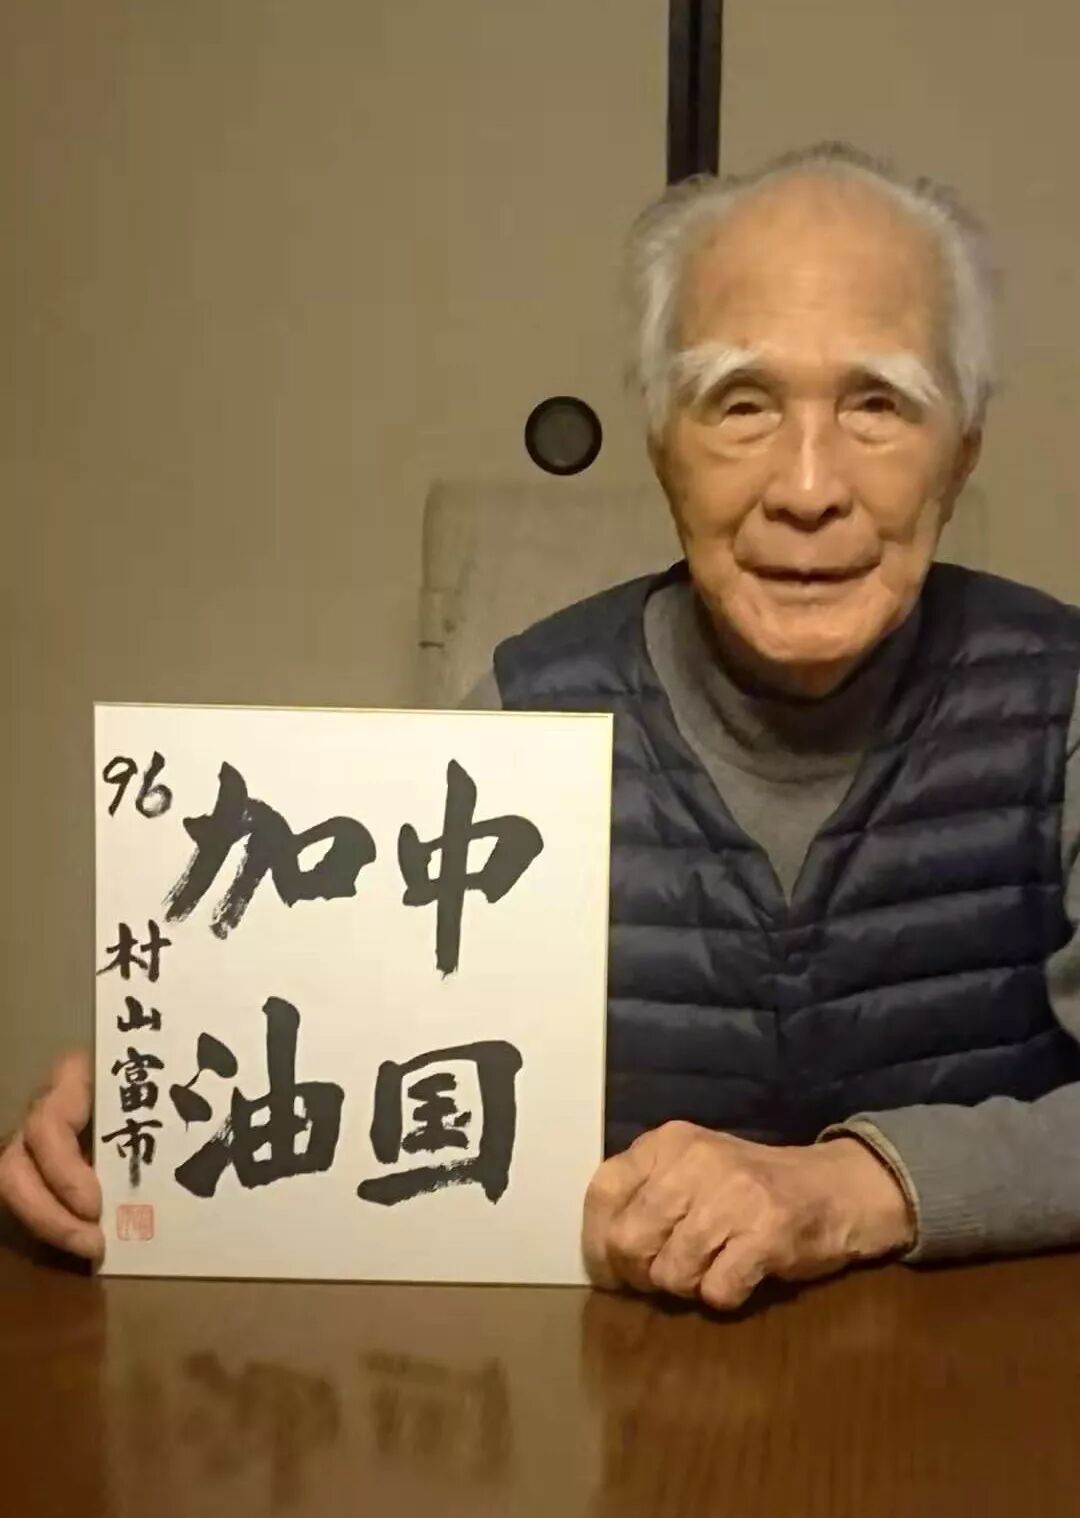 中国
加油
96
村山富市